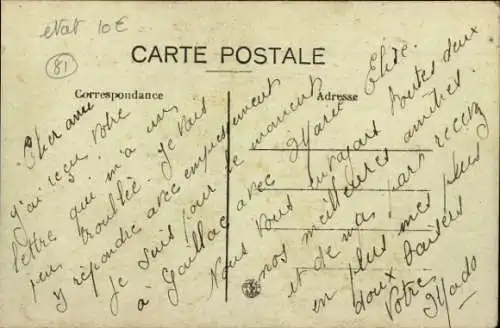 état 10€
81
CARTE POSTALE
Correspondance
Adresse
Cher ami
j'ai reçu votre
lettre qui m'a un
peu troublée. Je vais
y répondre avec empressement
Je suis pour le moment
à Gaillac avec Marie Elise.
Nous vous envoyons toutes deux
nos meilleures amitiés.
et de ma part recevez
en plus mes plus
doux baisers
Votre
Mado